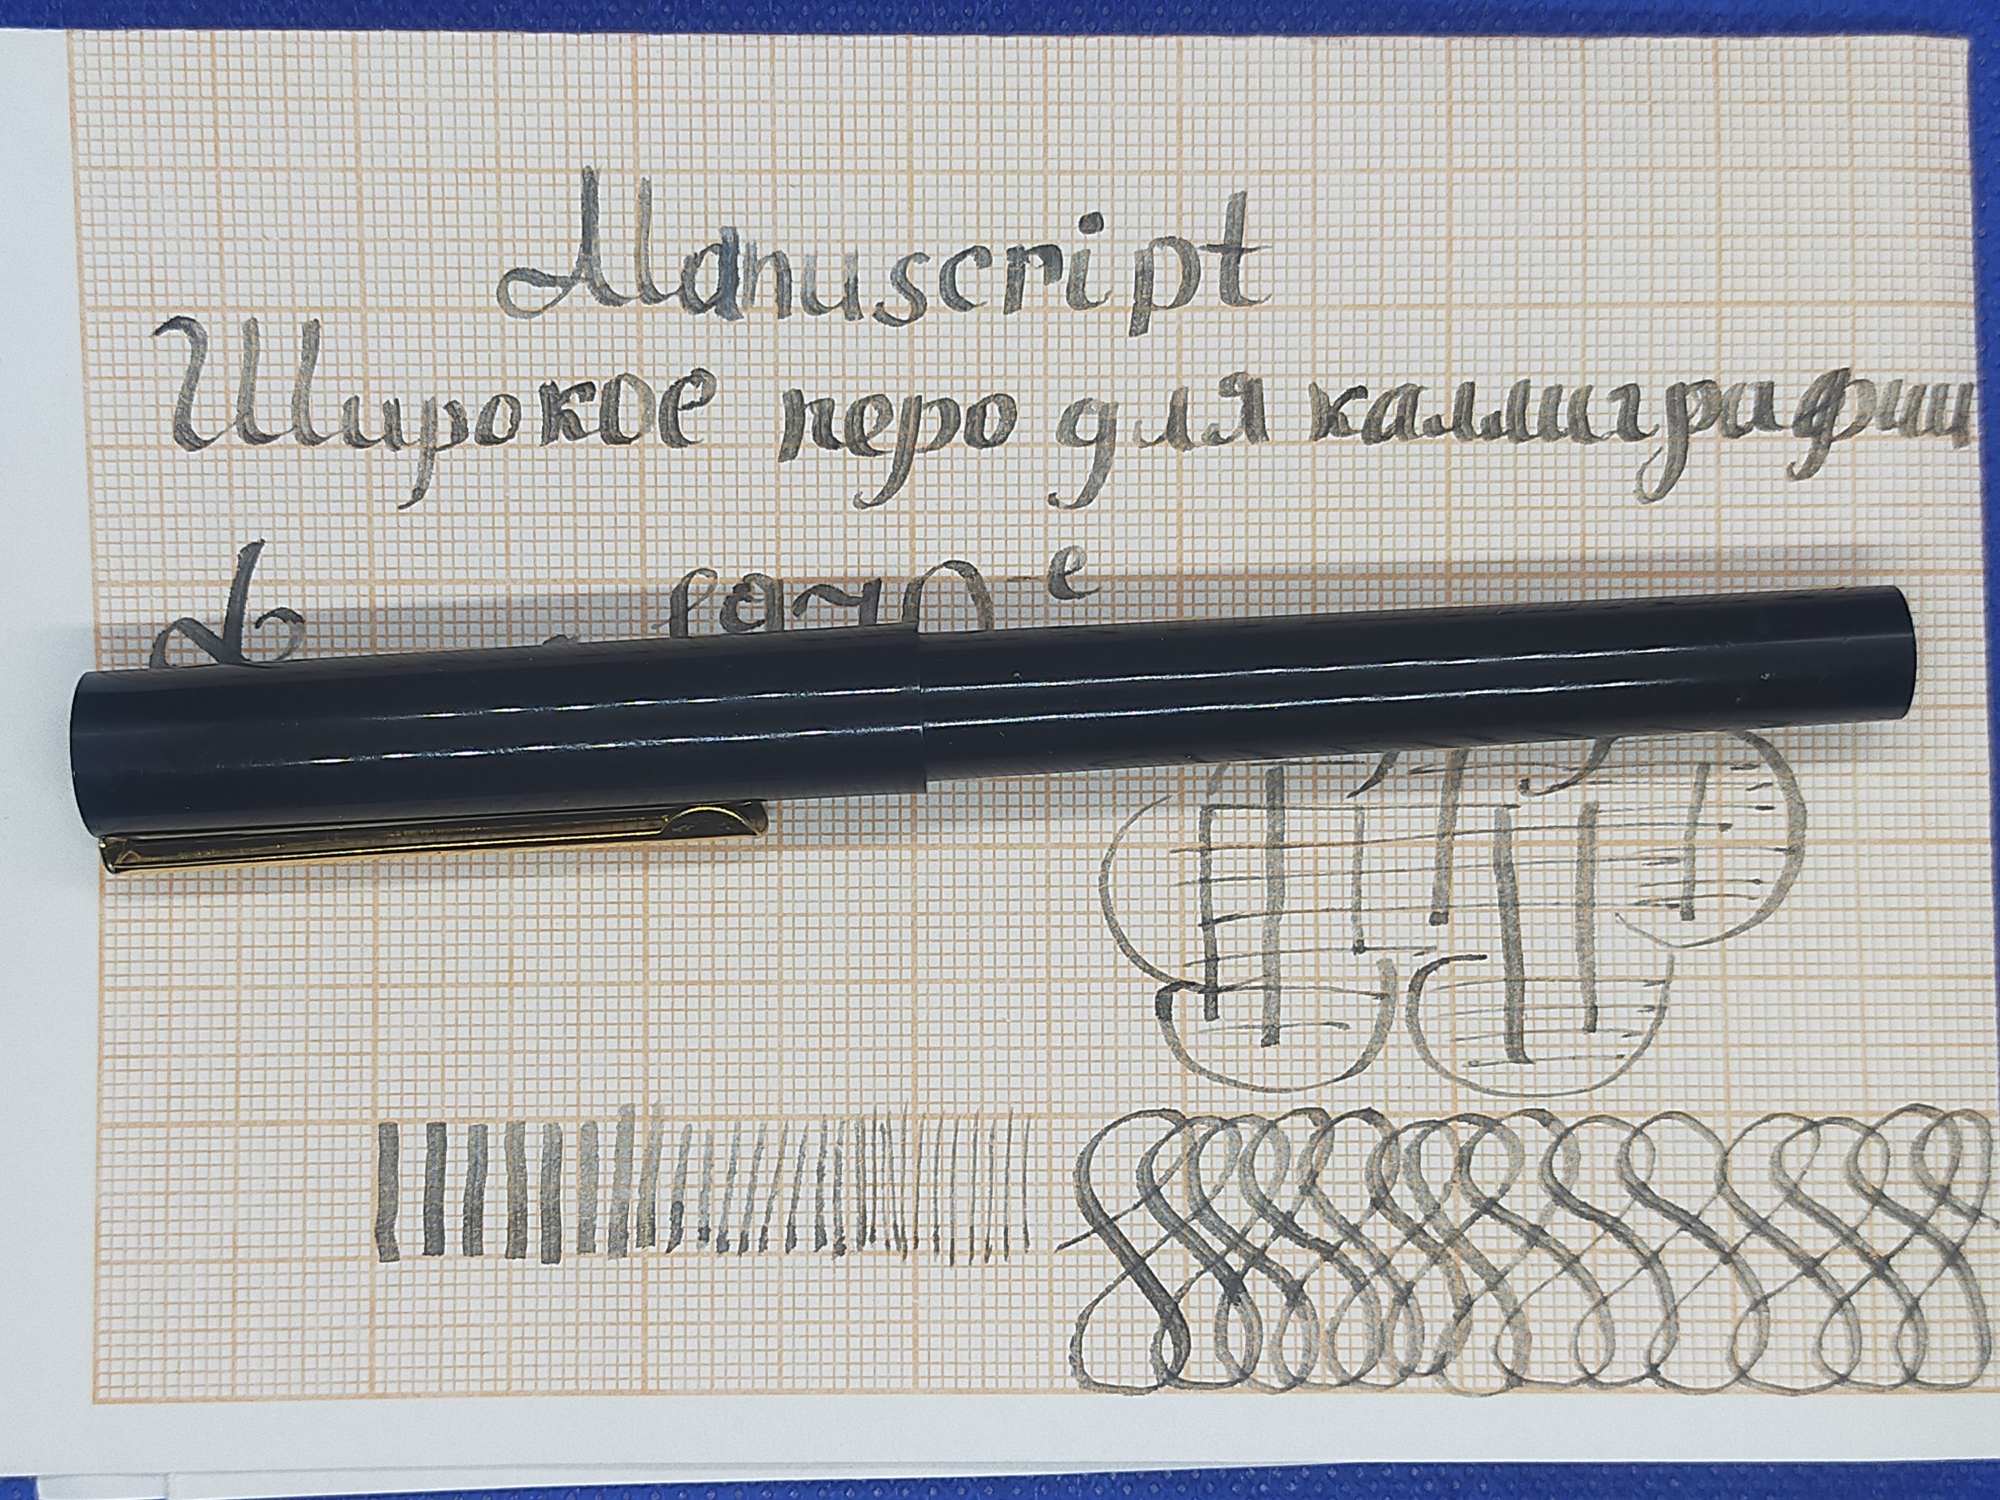 Manuscript
Широкое перо для каллиграфии